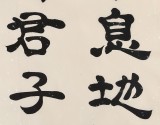 息地
君子